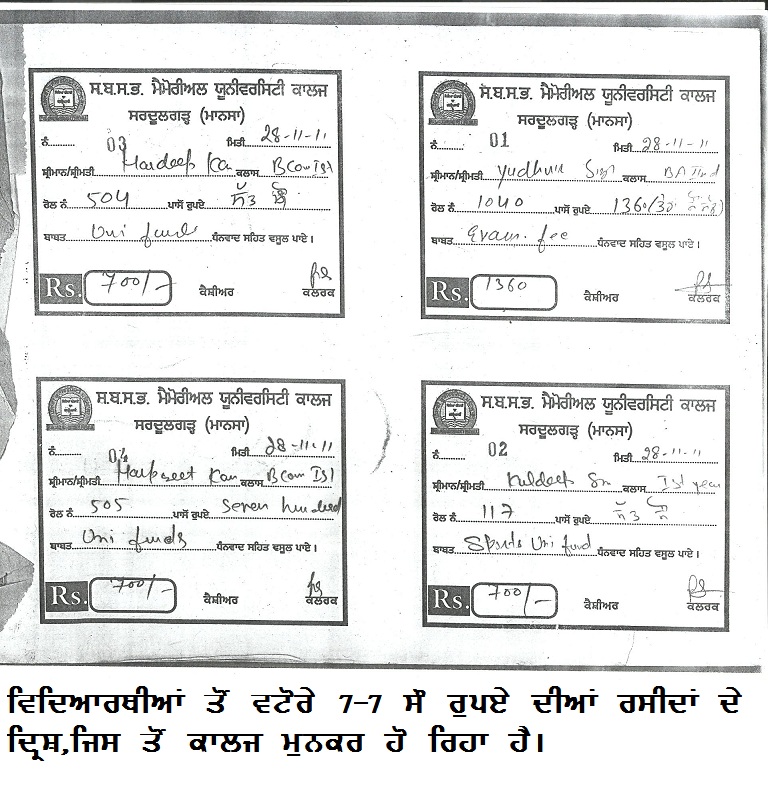 ਸ.ਬ.ਸ.ਭ. ਮੈਮੋਰੀਅਲ ਯੂਨੀਵਰਸਿਟੀ ਕਾਲਜ
ਸਰਦੂਲਗੜ੍ਹ (ਮਾਨਸਾ)
ਨੰ. 03 ਮਿਤੀ 28-11-11
ਸ੍ਰੀਮਾਨ/ਸ੍ਰੀਮਤੀ Hardeep Kau ਕਲਾਸ B Com Ist
ਰੋਲ ਨੰ. 504 ਪਾਸੋਂ ਰੁਪਏ ਸੱਤ ਸੌ
ਬਾਬਤ Uni funds ਧੰਨਵਾਦ ਸਹਿਤ ਵਸੂਲ ਪਾਏ।
Rs. 700/- ਕੈਸ਼ੀਅਰ ਕਲਰਕ
ਸ.ਬ.ਸ.ਭ. ਮੈਮੋਰੀਅਲ ਯੂਨੀਵਰਸਿਟੀ ਕਾਲਜ
ਸਰਦੂਲਗੜ੍ਹ (ਮਾਨਸਾ)
ਨੰ. 01 ਮਿਤੀ 28-11-11
ਸ੍ਰੀਮਾਨ/ਸ੍ਰੀਮਤੀ Singh ਕਲਾਸ BA
ਰੋਲ ਨੰ. 1040 ਪਾਸੋਂ ਰੁਪਏ 1360
ਬਾਬਤ Exam. fee ਧੰਨਵਾਦ ਸਹਿਤ ਵਸੂਲ ਪਾਏ।
Rs. 1360 ਕੈਸ਼ੀਅਰ ਕਲਰਕ
ਸ.ਬ.ਸ.ਭ. ਮੈਮੋਰੀਅਲ ਯੂਨੀਵਰਸਿਟੀ ਕਾਲਜ
ਸਰਦੂਲਗੜ੍ਹ (ਮਾਨਸਾ)
ਨੰ. 04 ਮਿਤੀ 28-11-11
ਸ੍ਰੀਮਾਨ/ਸ੍ਰੀਮਤੀ Harpreet Kau ਕਲਾਸ B Com Ist
ਰੋਲ ਨੰ. 505 ਪਾਸੋਂ ਰੁਪਏ Seven hundred
ਬਾਬਤ Uni funds ਧੰਨਵਾਦ ਸਹਿਤ ਵਸੂਲ ਪਾਏ।
Rs. 700/- ਕੈਸ਼ੀਅਰ ਕਲਰਕ
ਸ.ਬ.ਸ.ਭ. ਮੈਮੋਰੀਅਲ ਯੂਨੀਵਰਸਿਟੀ ਕਾਲਜ
ਸਰਦੂਲਗੜ੍ਹ (ਮਾਨਸਾ)
ਨੰ. 02 ਮਿਤੀ 28-11-11
ਸ੍ਰੀਮਾਨ/ਸ੍ਰੀਮਤੀ Kuldeep ਕਲਾਸ Ist year
ਰੋਲ ਨੰ. 117 ਪਾਸੋਂ ਰੁਪਏ ਸੱਤ ਸੌ
ਬਾਬਤ Sports Uni fund ਧੰਨਵਾਦ ਸਹਿਤ ਵਸੂਲ ਪਾਏ।
Rs. 700/- ਕੈਸ਼ੀਅਰ ਕਲਰਕ
ਵਿਦਿਆਰਥੀਆਂ ਤੋਂ ਵਟੋਰੇ 7-7 ਸੌ ਰੁਪਏ ਦੀਆਂ ਰਸੀਦਾਂ ਦੇ
ਦ੍ਰਿਸ਼,ਜਿਸ ਤੋਂ ਕਾਲਜ ਮੁਨਕਰ ਹੋ ਰਿਹਾ ਹੈ।